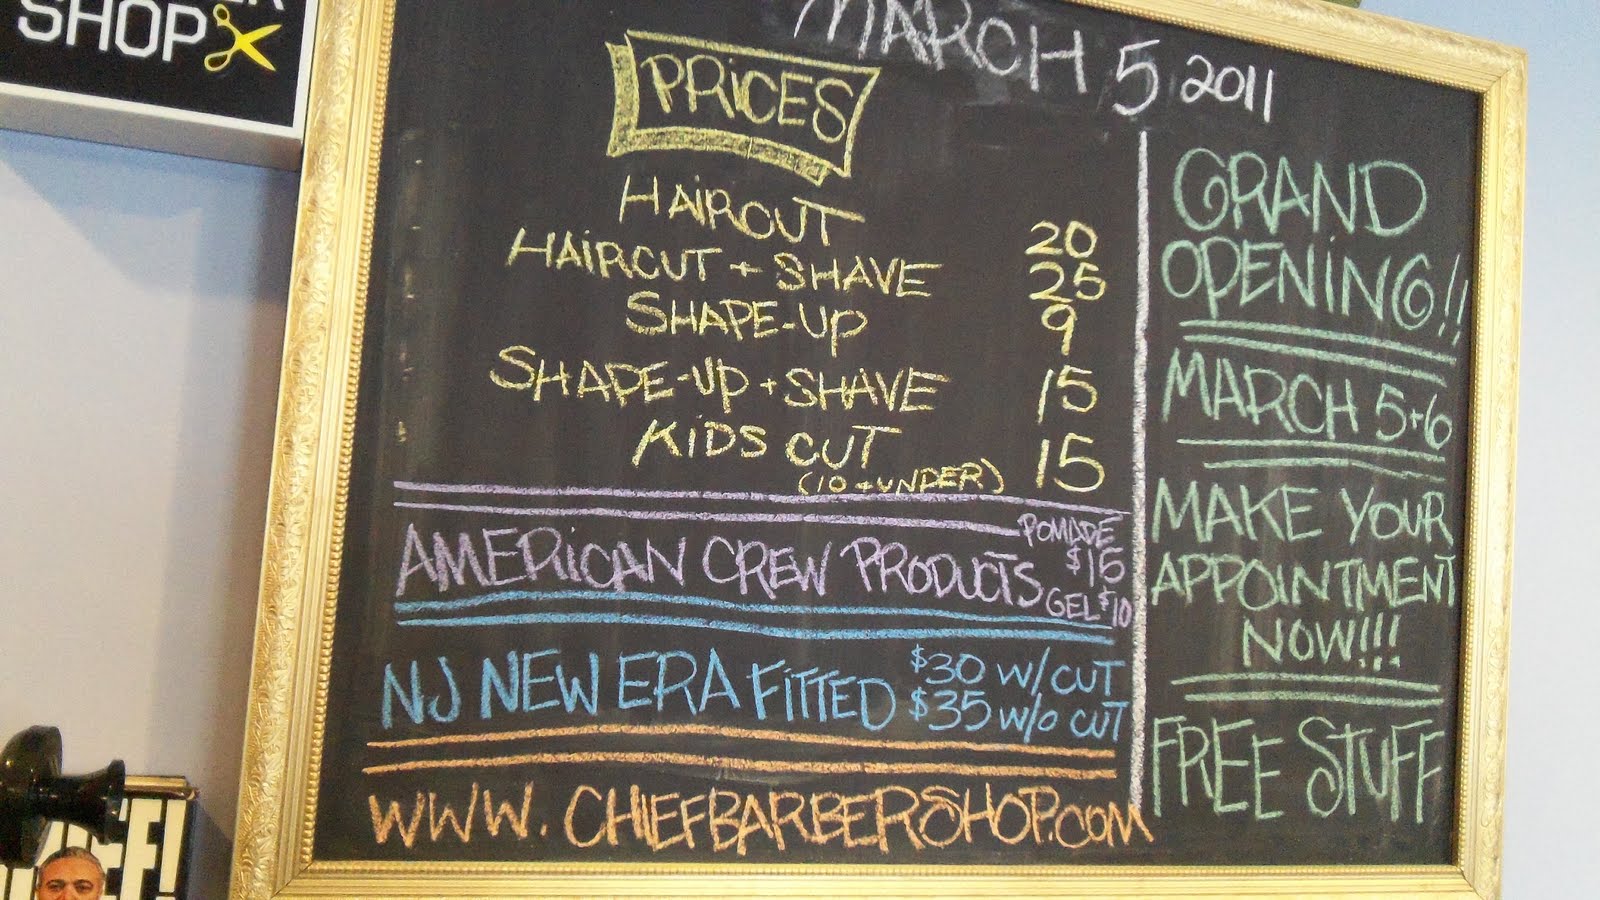 SHOP
MARCH 5 2011
PRICES
HAIRCUT 20
HAIRCUT + SHAVE 25
SHAPE-UP 9
SHAPE-UP + SHAVE 15
KIDS CUT 15
(10 + UNDER)
AMERICAN CREW PRODUCTS
POMADE
$15
GEL $10
NJ NEW ERA FITTED
$30 W/ CUT
$35 W/O CUT
WWW.CHIEFBARBERSHOP.COM
GRAND
OPENING!!
MARCH 5+6
MAKE YOUR
APPOINTMENT
NOW!!!
FREE STUFF